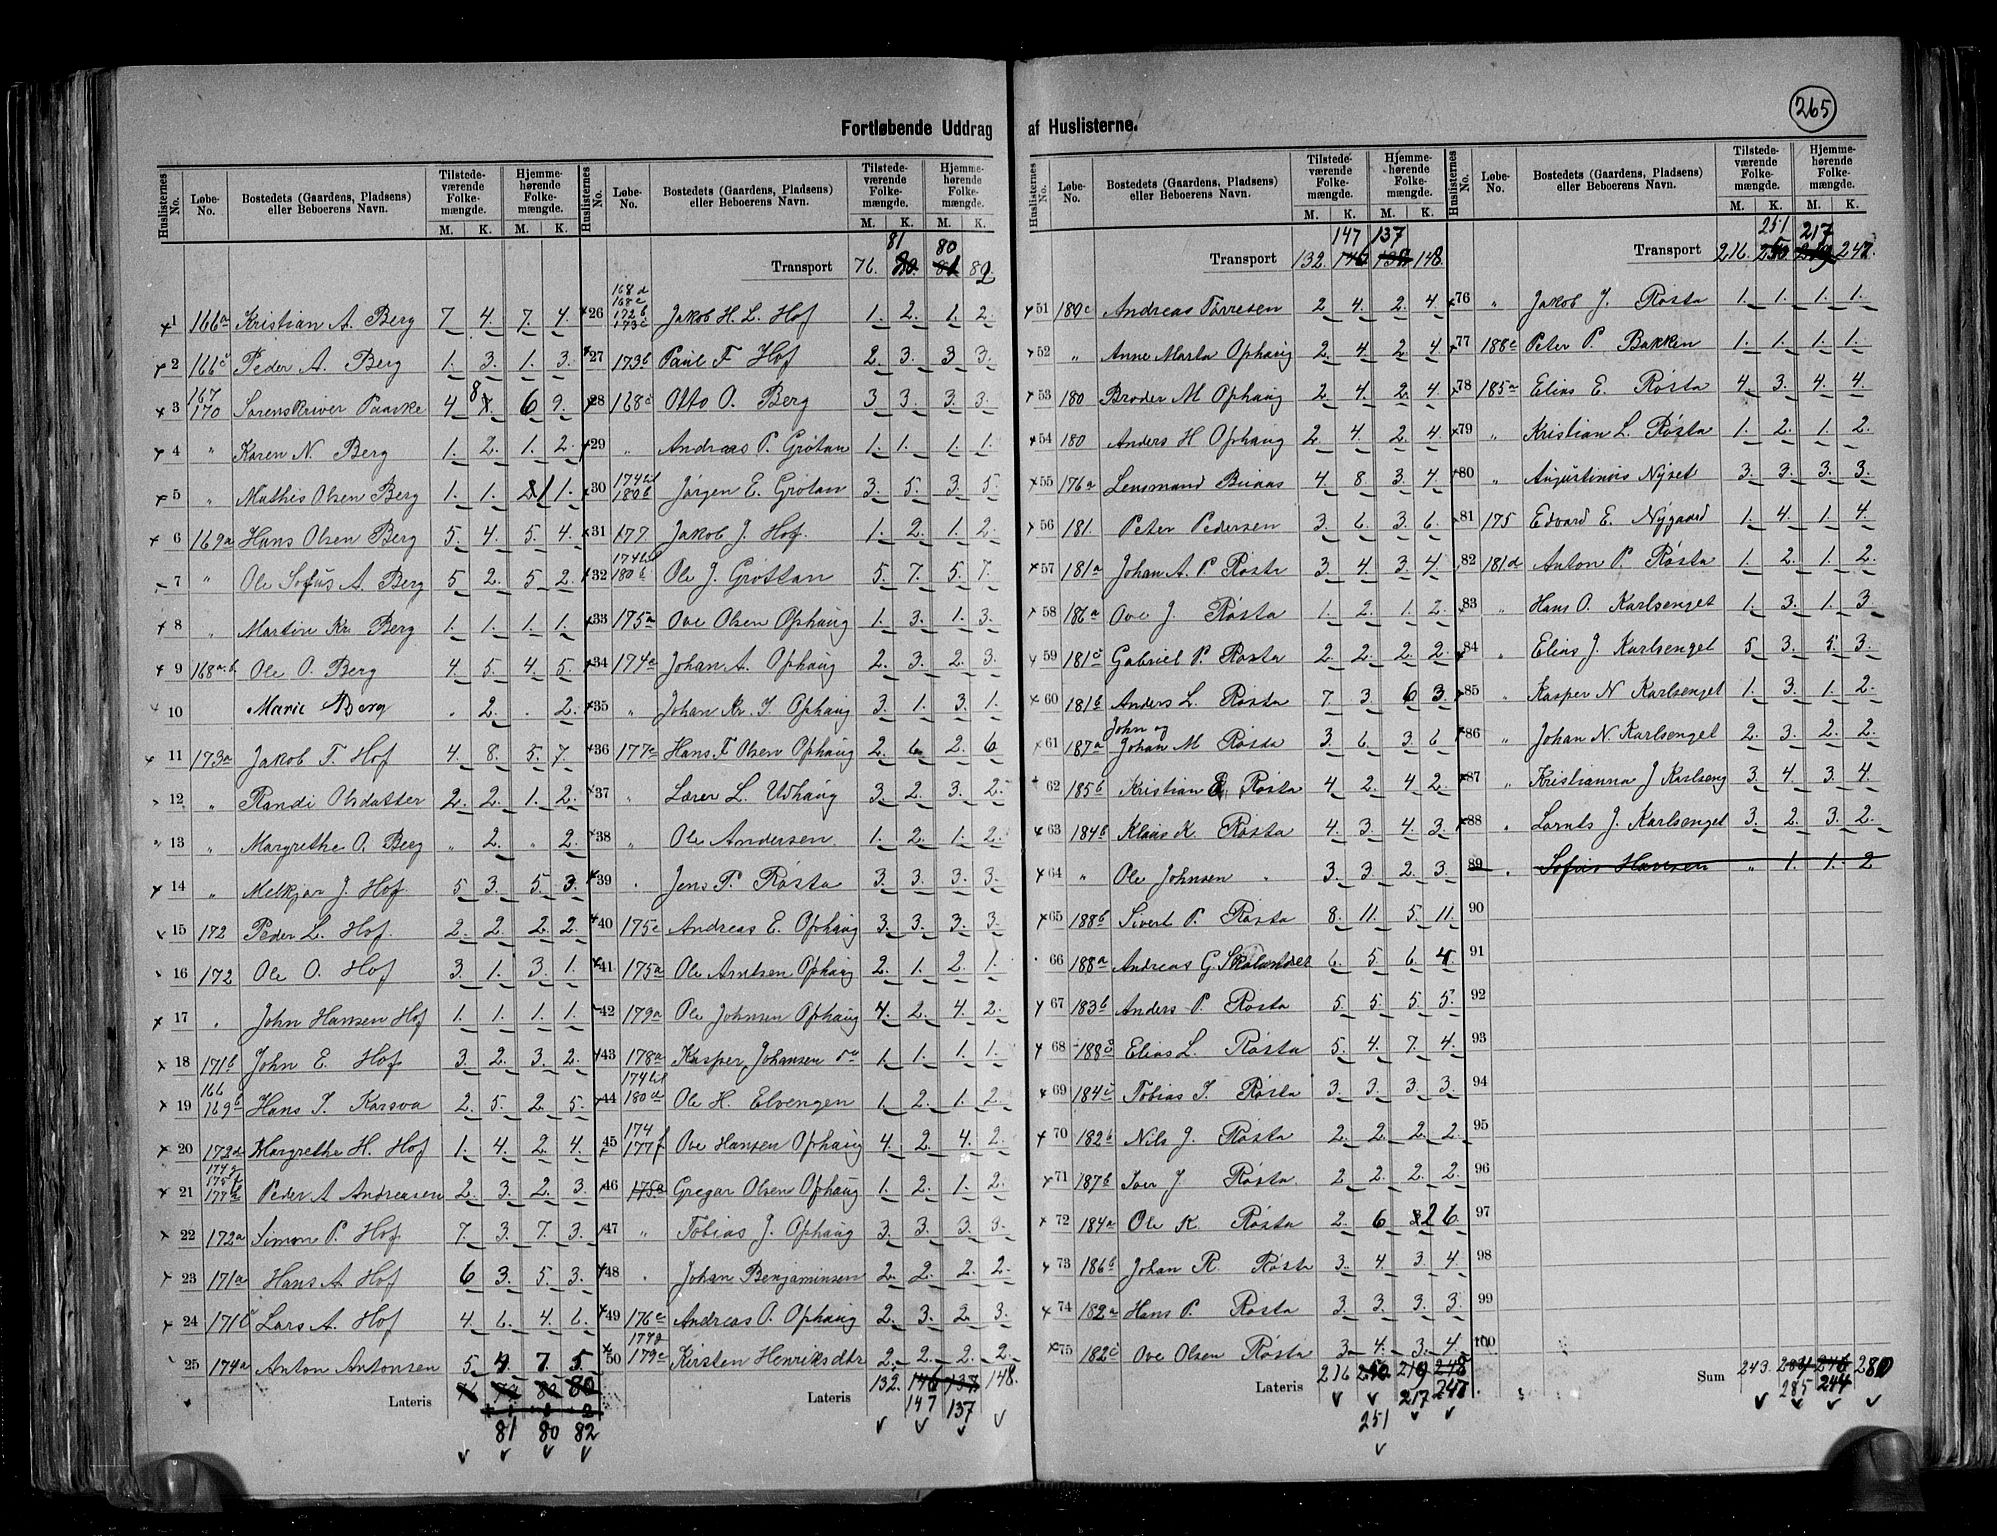 265
Fortløbende Uddrag af Huslisterne.
Huslisternes No. Løbe-No. Bostedets (Gaardens, Pladsens) eller Beboerens Navn. Tilstedeværende Folkemængde. M. K. Hjemmehørende Folkemængde. M. K.
1 166a Kristian A. Berg 7. 4. 7. 4.
2 166c Peder A. Berg 1. 3. 1. 3.
3 167 170 Sorenskriver Paaske 4 8 6 9.
4 " Karen N. Berg 1. 2. 1. 2.
5 " Mathis Olsen Berg 1. 1. 1 1.
6 169a Hans Olsen Berg 5. 4. 5. 4.
7 " Ole Sofus A. Berg 5 2. 5 2.
8 " Martin Kr. Berg 1. 1. 1. 1.
9 168a.b Ole O. Berg 4. 5. 4. 5.
10 Marie Berg . 2. . 2.
11 173a Jakob T. Hof 4. 8. 5. 7.
12 " Randi Olsdatter 2. 2. 1. 2.
13 " Margrethe O. Berg " 2. " 2.
14 " Melkjor J. Hof 5 3. 5. 3.
15 172 Peder L. Hof 2. 2. 2. 2.
16 172 Ole O. Hof 3. 1. 3. 1.
17 " John Hansen Hof 1. 1. 1. 1.
18 171b John E. Hof 3. 2. 3. 2.
19 166 169b Hans J. Karsva 2. 5. 2. 5.
20 172d Margrethe H. Hof 1. 4. 2 4.
21 Peder A Andreasen 2. 3. 2. 3.
22 172a Simon P. Hof 7. 3. 7. 3.
23 171a Hans A. Hof 6 3. 5. 3.
24 171c Lars A. Hof 4. 6. 4. 6.
25 174a Anton Antonsen 5 4. 7. 5
Lateris 76 80 80
81 80 82
Transport 76. 81 80 82
26 168d 168e 172b 173c Jakob H. L. Hof 1. 2. 1. 2.
27 173b Paul F Hof 2. 3. 3 3.
28 168c Otto O. Berg 3 3. 3. 3.
29 " Andreas P. Grötan 1. 1. 1. 1.
30 180b Jørgen E. Grötan 3. 5. 3. 5.
31 177 Jakob J. Hof. 1. 2. 1. 2.
32 180b Ole J. Grøttan 5. 7. 5. 7.
33 175a Ove Olsen Ophaug 1. 3. 1. 3.
34 174c Johan A. Ophaug 2. 3. 2. 3.
35 " Johan Kr. J. Ophaug 3. 1. 3. 1.
36 177c Hans F Olsen Ophaug 2. 6 2. 6
37 " Lærer L. Udhaug 3. 2. 3. 2.
38 " Ole Andersen 1. 2. 1. 2.
39 " Jens P. Røsta 3. 3. 3. 3.
40 175c Andreas E. Ophaug 3. 3. 3. 3.
41 175a Ole Arntsen Ophaug 2. 1. 2. 1.
42 179a Ole Johnsen Ophaug 4. 2. 4. 2.
43 178a Kasper Johansen do 1. 1. 1. 1.
44 180d Ole H. Elvengen 1. 2. 1. 2.
45 174 177f Ove Hansen Ophaug 4. 2. 4. 2.
46 175a Gregar Olsen Ophaug 1. 2. 1. 2.
47 " Tobias J. Ophaug 3. 3. 3. 3.
48 " Johan Benjaminsen 2. 2. 2. 2.
49 176c Andreas O. Ophaug 2. 3. 2. 3.
50 179c Kirsten Henriksdtr 2. 2. 2. 2.
Lateris 132. 146 137 148.
147 137
Huslisternes No. Løbe-No. Bostedets (Gaardens, Pladsens) eller Beboerens Navn. Tilstedeværende Folkemængde. M. K. Hjemmehørende Folkemængde. M. K.
147 137
Transport 132 146 138 148.
51 189c Andreas Tørresen 2 4. 2. 4.
52 " Anne Marta Ophaug 2. 4. 2. 4.
53 180 Broder M Ophaug 2 4. 2 4.
54 180 Anders H Ophaug 2 4. 2 4.
55 176a Lensmand Buaas 4 8. 3 4.
56 181. Peter Pedersen 3. 6. 3. 6.
57 181a Johan A. P Røsta 3. 4. 3 4.
58 186a Ove J. Røsta 1. 2. 1. 2.
59 181c Gabriel P. Røsta 2. 2. 2. 2.
60 181b Anders L. Røsta 7. 3. 6 3.
61 187a John og Johan M Røsta 3. 6. 3. 6
62 185b Kristian Røsta 4 2. 4 2.
63 184b Klaus K. Røsta 4. 3. 4. 3.
64 " Ole Johnsen " 3. 3. 2 3.
65 188b Sivert P. Røsta 8. 11. 5. 11.
66 188a Andreas G. Skolandser 6. 5 6. 4.
67 183b Anders P. Røsta 5. 5. 5. 5.
68 188c Elias L. Røsta 5. 4. 7. 4.
69 184c Tobias J. Røsta 3. 3. 3. 3.
70 182b Nils J. Røsta 2. 2. 2. 2.
71 187b Iver J Røsta. 2. 2. 2. 2.
72 184a Ole K. Røsta 2. 6 2 6.
73 186b Johan R. Røsta 3. 4. 3. 4.
74 182a Hans P. Røsta 3. 3. 3. 3.
75 182c Ove Olsen Røsta 3. 4. 3. 4.
Lateris 216 250 219 248
217 247
251
251 217
Transport 216. 250 219 247.
76 " Jakob J. Røsta 1. 1. 1. 1.
77 188c Peter P. Bakken 1. 1. 1. 1.
78 185a Elias E. Røsta 4. 3. 4. 4.
79 " Kristian L. Røsta 1. 2. 1. 2.
80 " Augustinus Nyset 3. 3. 3. 3.
81 175 Edvard E. Nygaard 1. 4. 1. 4.
82 181d Anton P. Røsta 1. 2. 1. 2.
83 " Hans O. Karlsenget 1. 3. 1. 3
84 " Elias J. Karlsenget 5 3. 5. 3.
85 " Kasper N Karlsenget 1. 3. 1. 2.
86 " Johan N. Karlsenget 2. 3. 2. 2.
87 " Kristianna J Karlseng 3. 4. 3. 4.
88 " Lornts J. Karlsenget 3. 2. 3. 2.
89 " Sofus Hansen " 1. 1. 2
90
91
92
93
94
95
96
97
98
99
100
Sum 243. 284 246 280
285 244